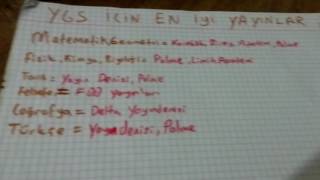 YGS İÇİN EN İYİ YAYINLAR
Matematik, Geometri = Karekök, Palme
Fizik, Kimya, = Palme, Limit
Tarih = Yayın Denizi, Palme
Felsefe = FDD yayınları
Coğrafya = Delta Yayınevi
Türkçe = Yayın denizi, Palme